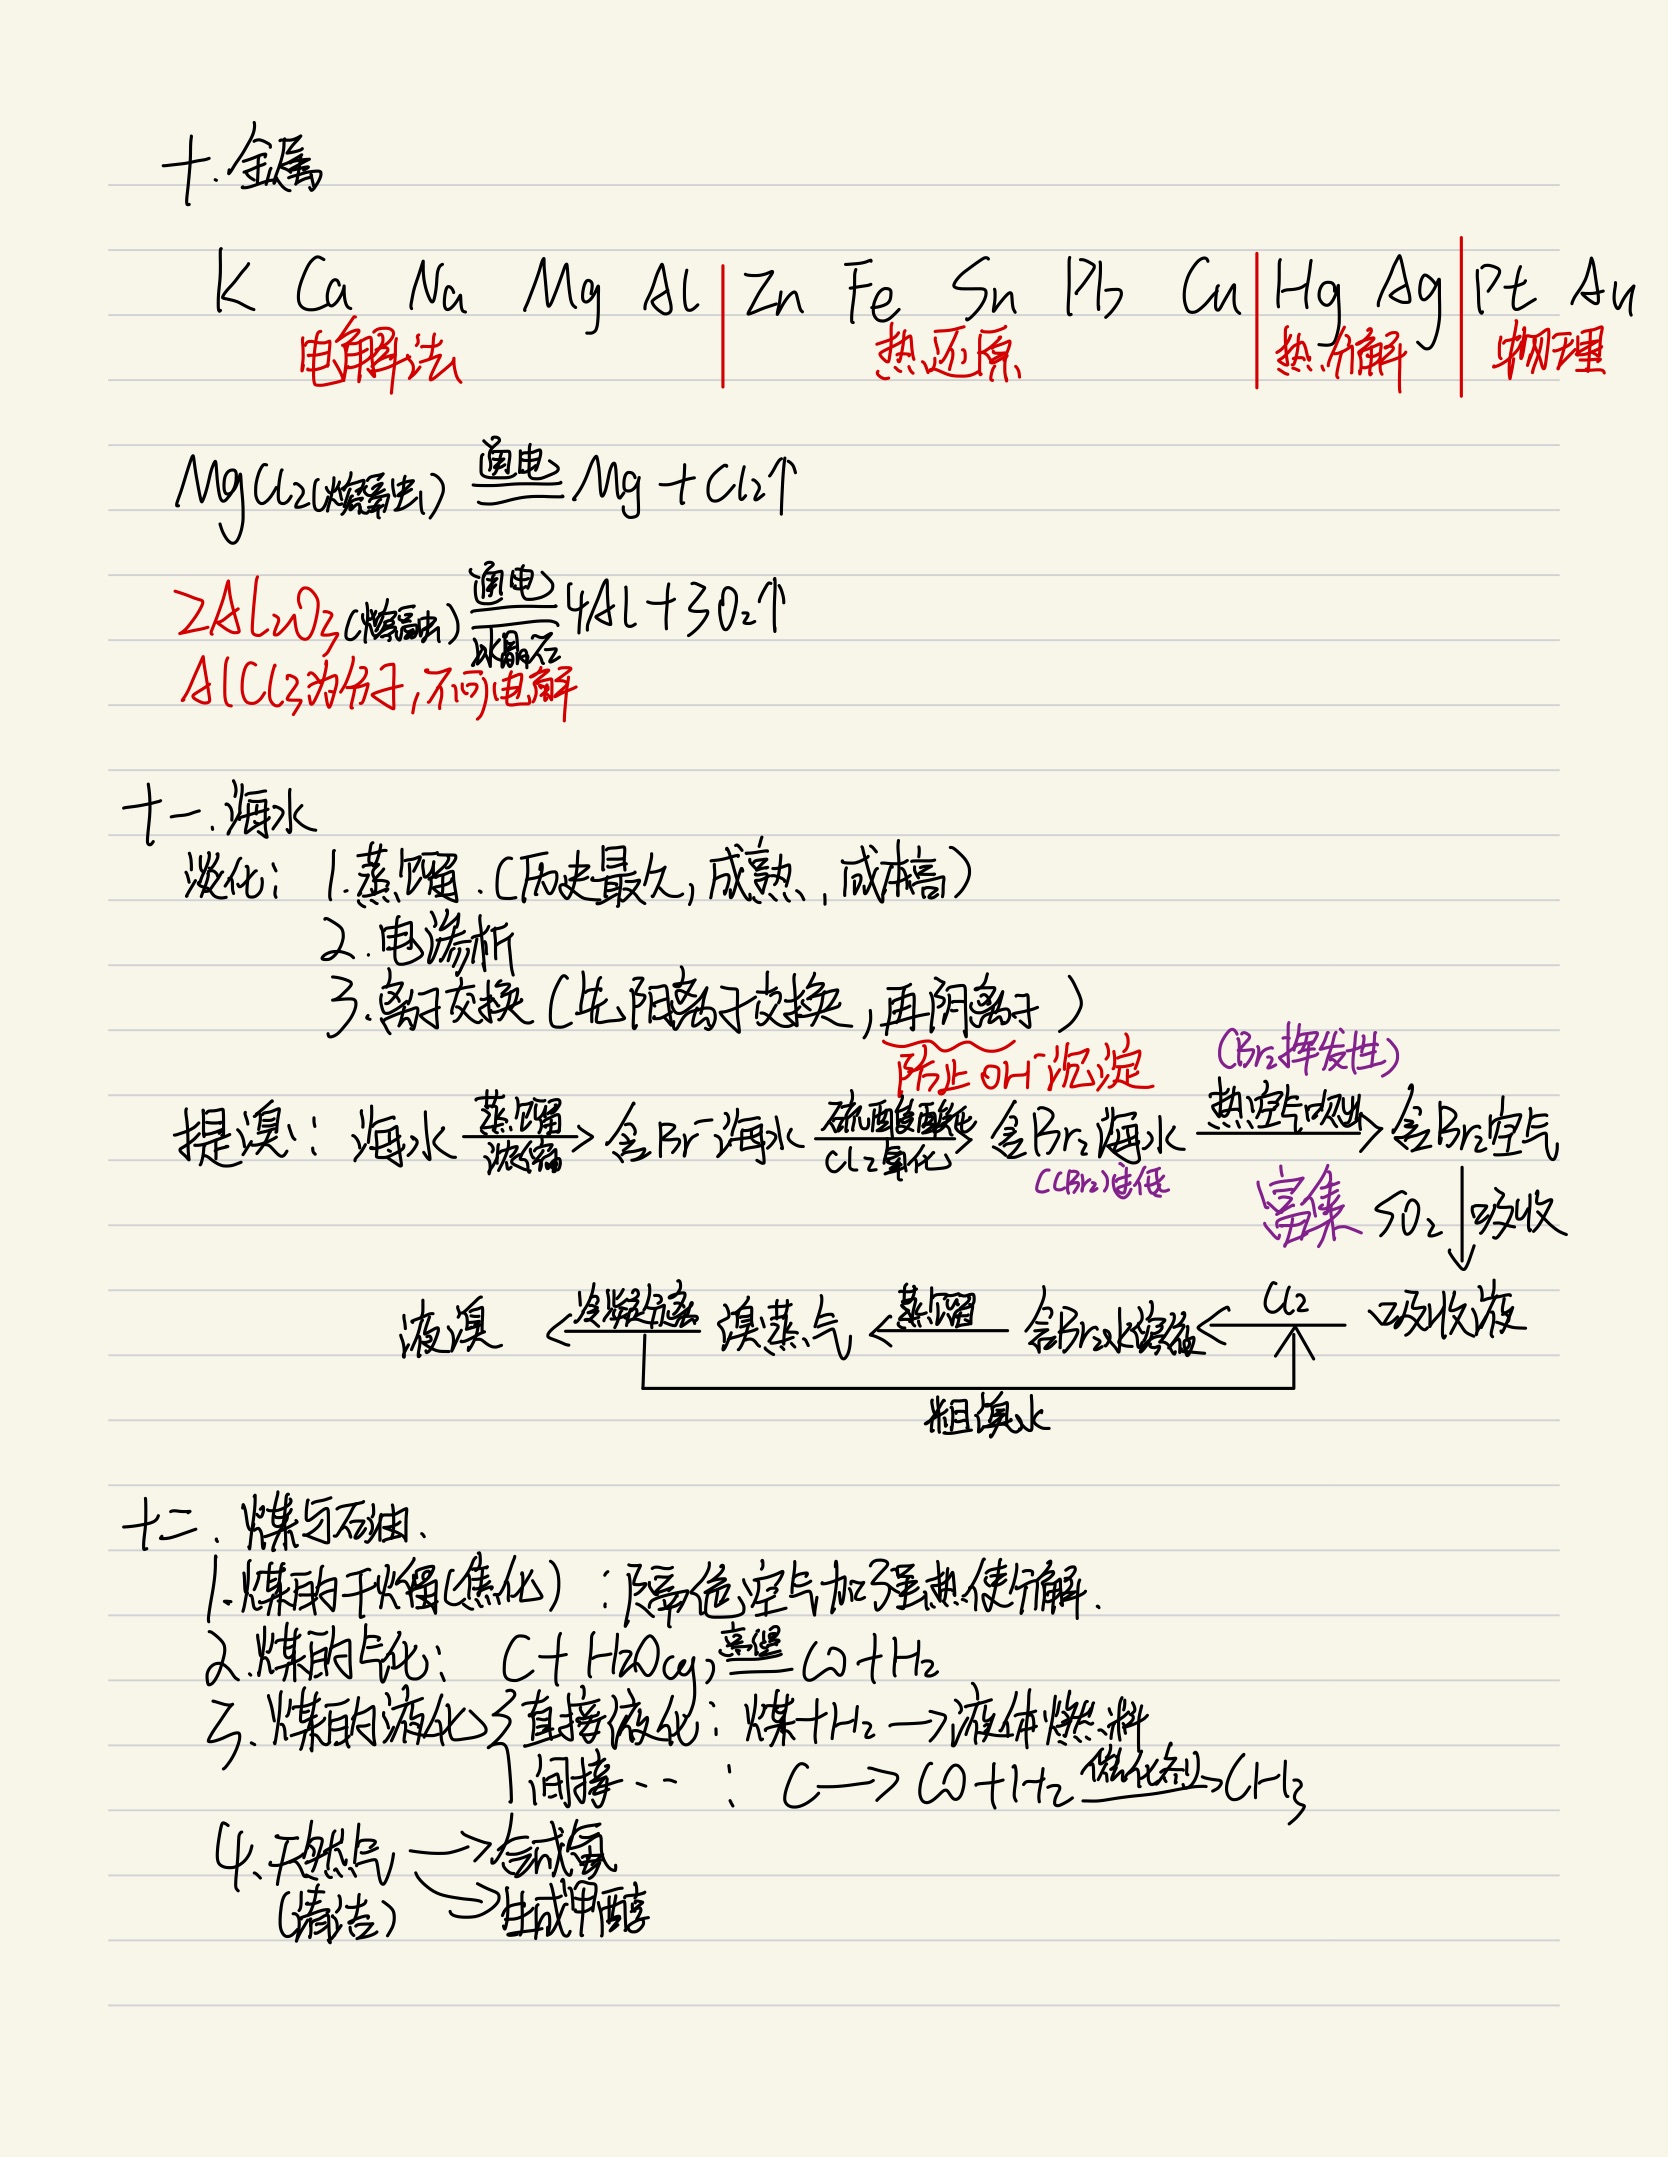 十.金属
K Ca Na Mg Al | Zn Fe Sn Pb Cu | Hg Ag | Pt Au
电解法 热还原 热分解 物理
MgCl₂(熔融) 通电 Mg + Cl₂↑
2Al₂O₃(熔融) 通电 冰晶石 4Al + 3O₂↑
AlCl₃为分子,不可电解
十一.海水
淡化: 1.蒸馏.(历史最久,成熟,成本高)
2.电渗析
3.离子交换(先阳离子交换,再阴离子)
防止OH⁻沉淀 (Br₂挥发性)
提溴: 海水 蒸馏 浓缩 → 含Br⁻海水 硫酸酸化 Cl₂氧化 → 含Br₂海水 热空气吹出 → 含Br₂空气
(C(Br₂)过低 富集 SO₂ ↓ 吸收
液溴 ← 冷凝分离 溴蒸气 ← 蒸馏 含Br₂水溶液 ← Cl₂ 吸收液
粗溴水
十二.煤与石油.
1.煤的干熘(焦化):隔绝空气加强热使分解.
2.煤的气化: C + H₂O(g) 高温 CO + H₂
3.煤的液化{直接液化: 煤+H₂ → 液体燃料
间接……: C → CO + H₂ 催化剂 → CH₃
4.天然气 → 合成氨
(清洁) → 生成甲醇